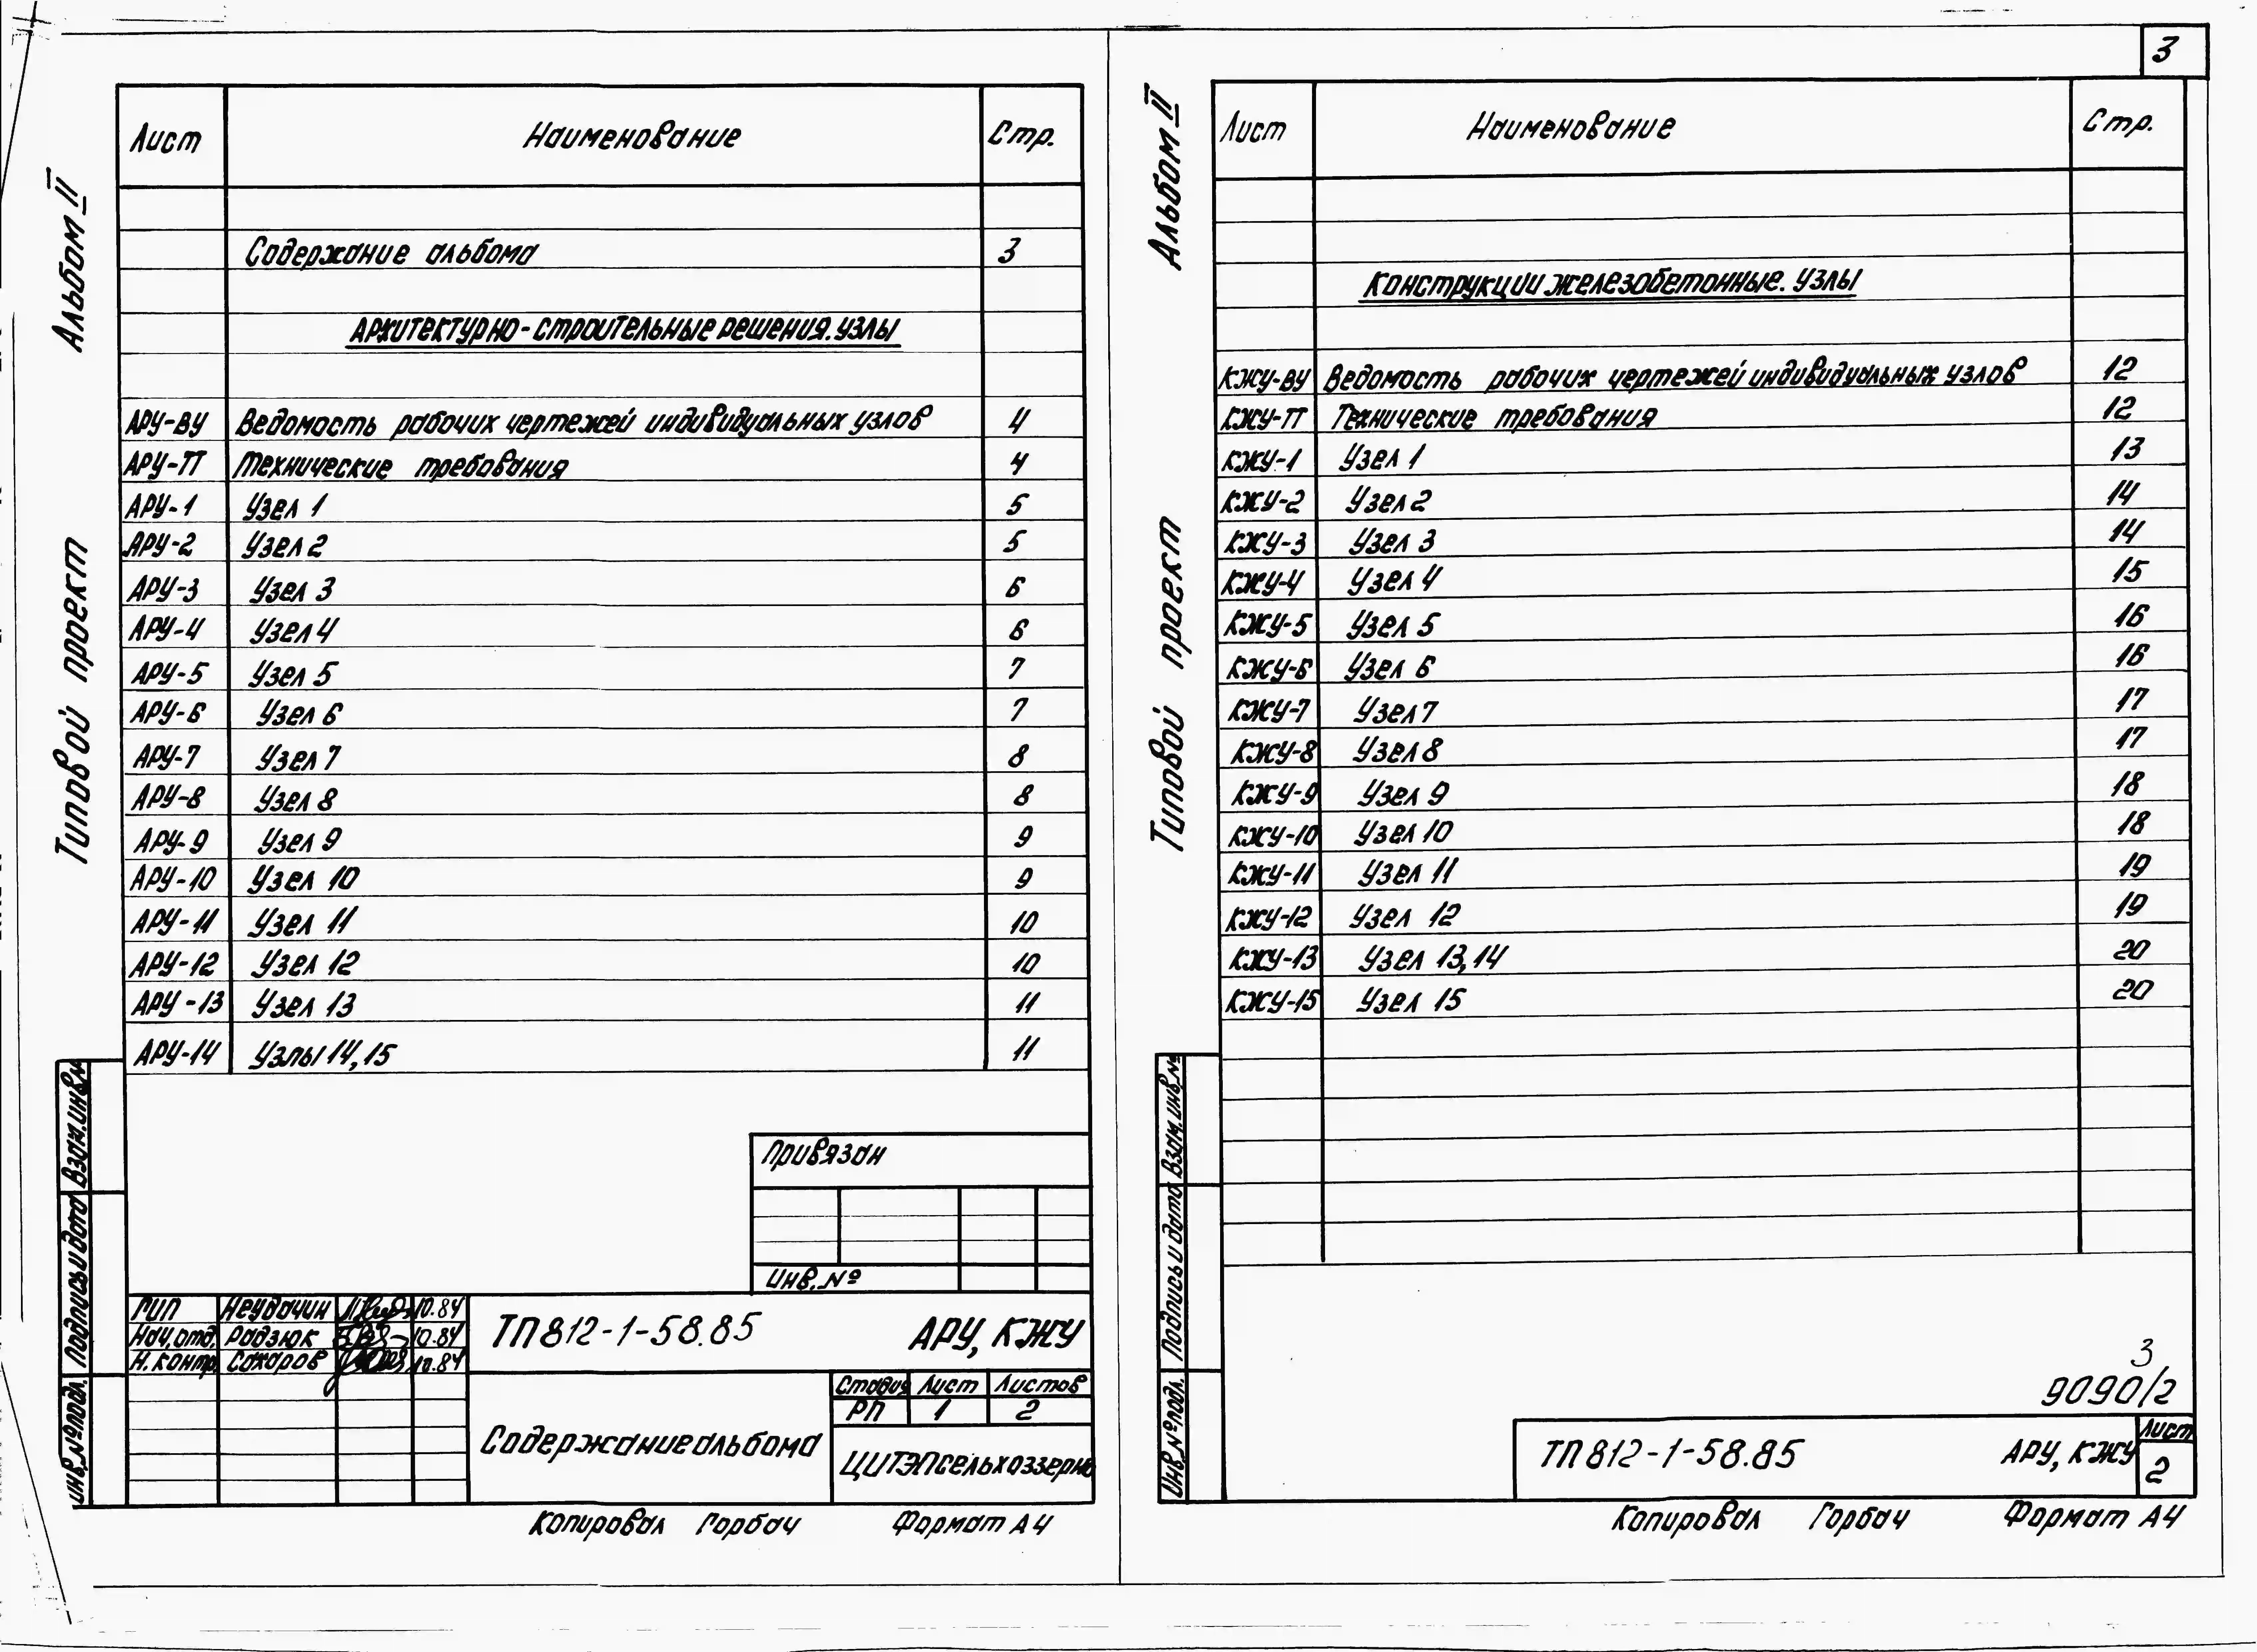 3
Альбом II
Типовой проект
Лист Наименование Стр.
Содержание альбома 3
Архитектурно-строительные решения. Узлы
АРУ-ВУ Ведомость рабочих чертежей индивидуальных узлов 4
АРУ-ТТ Технические требования 4
АРУ-1 Узел 1 5
АРУ-2 Узел 2 5
АРУ-3 Узел 3 6
АРУ-4 Узел 4 6
АРУ-5 Узел 5 7
АРУ-6 Узел 6 7
АРУ-7 Узел 7 8
АРУ-8 Узел 8 8
АРУ-9 Узел 9 9
АРУ-10 Узел 10 9
АРУ-11 Узел 11 10
АРУ-12 Узел 12 10
АРУ-13 Узел 13 11
АРУ-14 Узлы 14,15 11
Взам.инв.№
Подпись и дата
Инв.№подл.
Привязан
Инв.№
ГИП Неудачин 10.84
Нач.отд. Радзюк 10.84
Н.контр. Сахаров 10.84
ТП 812-1-58.85 АРУ, КЖУ
Содержание альбома
Стадия Лист Листов
РП 1 2
ЦИТЭПсельхоззерно
Копировал Горбач Формат А4
Альбом II
Типовой проект
Лист Наименование Стр.
Конструкции железобетонные. Узлы
КЖУ-ВУ Ведомость рабочих чертежей индивидуальных узлов 12
КЖУ-ТТ Технические требования 12
КЖУ-1 Узел 1 13
КЖУ-2 Узел 2 14
КЖУ-3 Узел 3 14
КЖУ-4 Узел 4 15
КЖУ-5 Узел 5 16
КЖУ-6 Узел 6 16
КЖУ-7 Узел 7 17
КЖУ-8 Узел 8 17
КЖУ-9 Узел 9 18
КЖУ-10 Узел 10 18
КЖУ-11 Узел 11 19
КЖУ-12 Узел 12 19
КЖУ-13 Узел 13,14 20
КЖУ-15 Узел 15 20
Взам.инв.№
Подпись и дата
Инв.№подл.
3
9090/2
ТП 812-1-58.85 АРУ, КЖУ
Лист
2
Копировал Горбач Формат А4